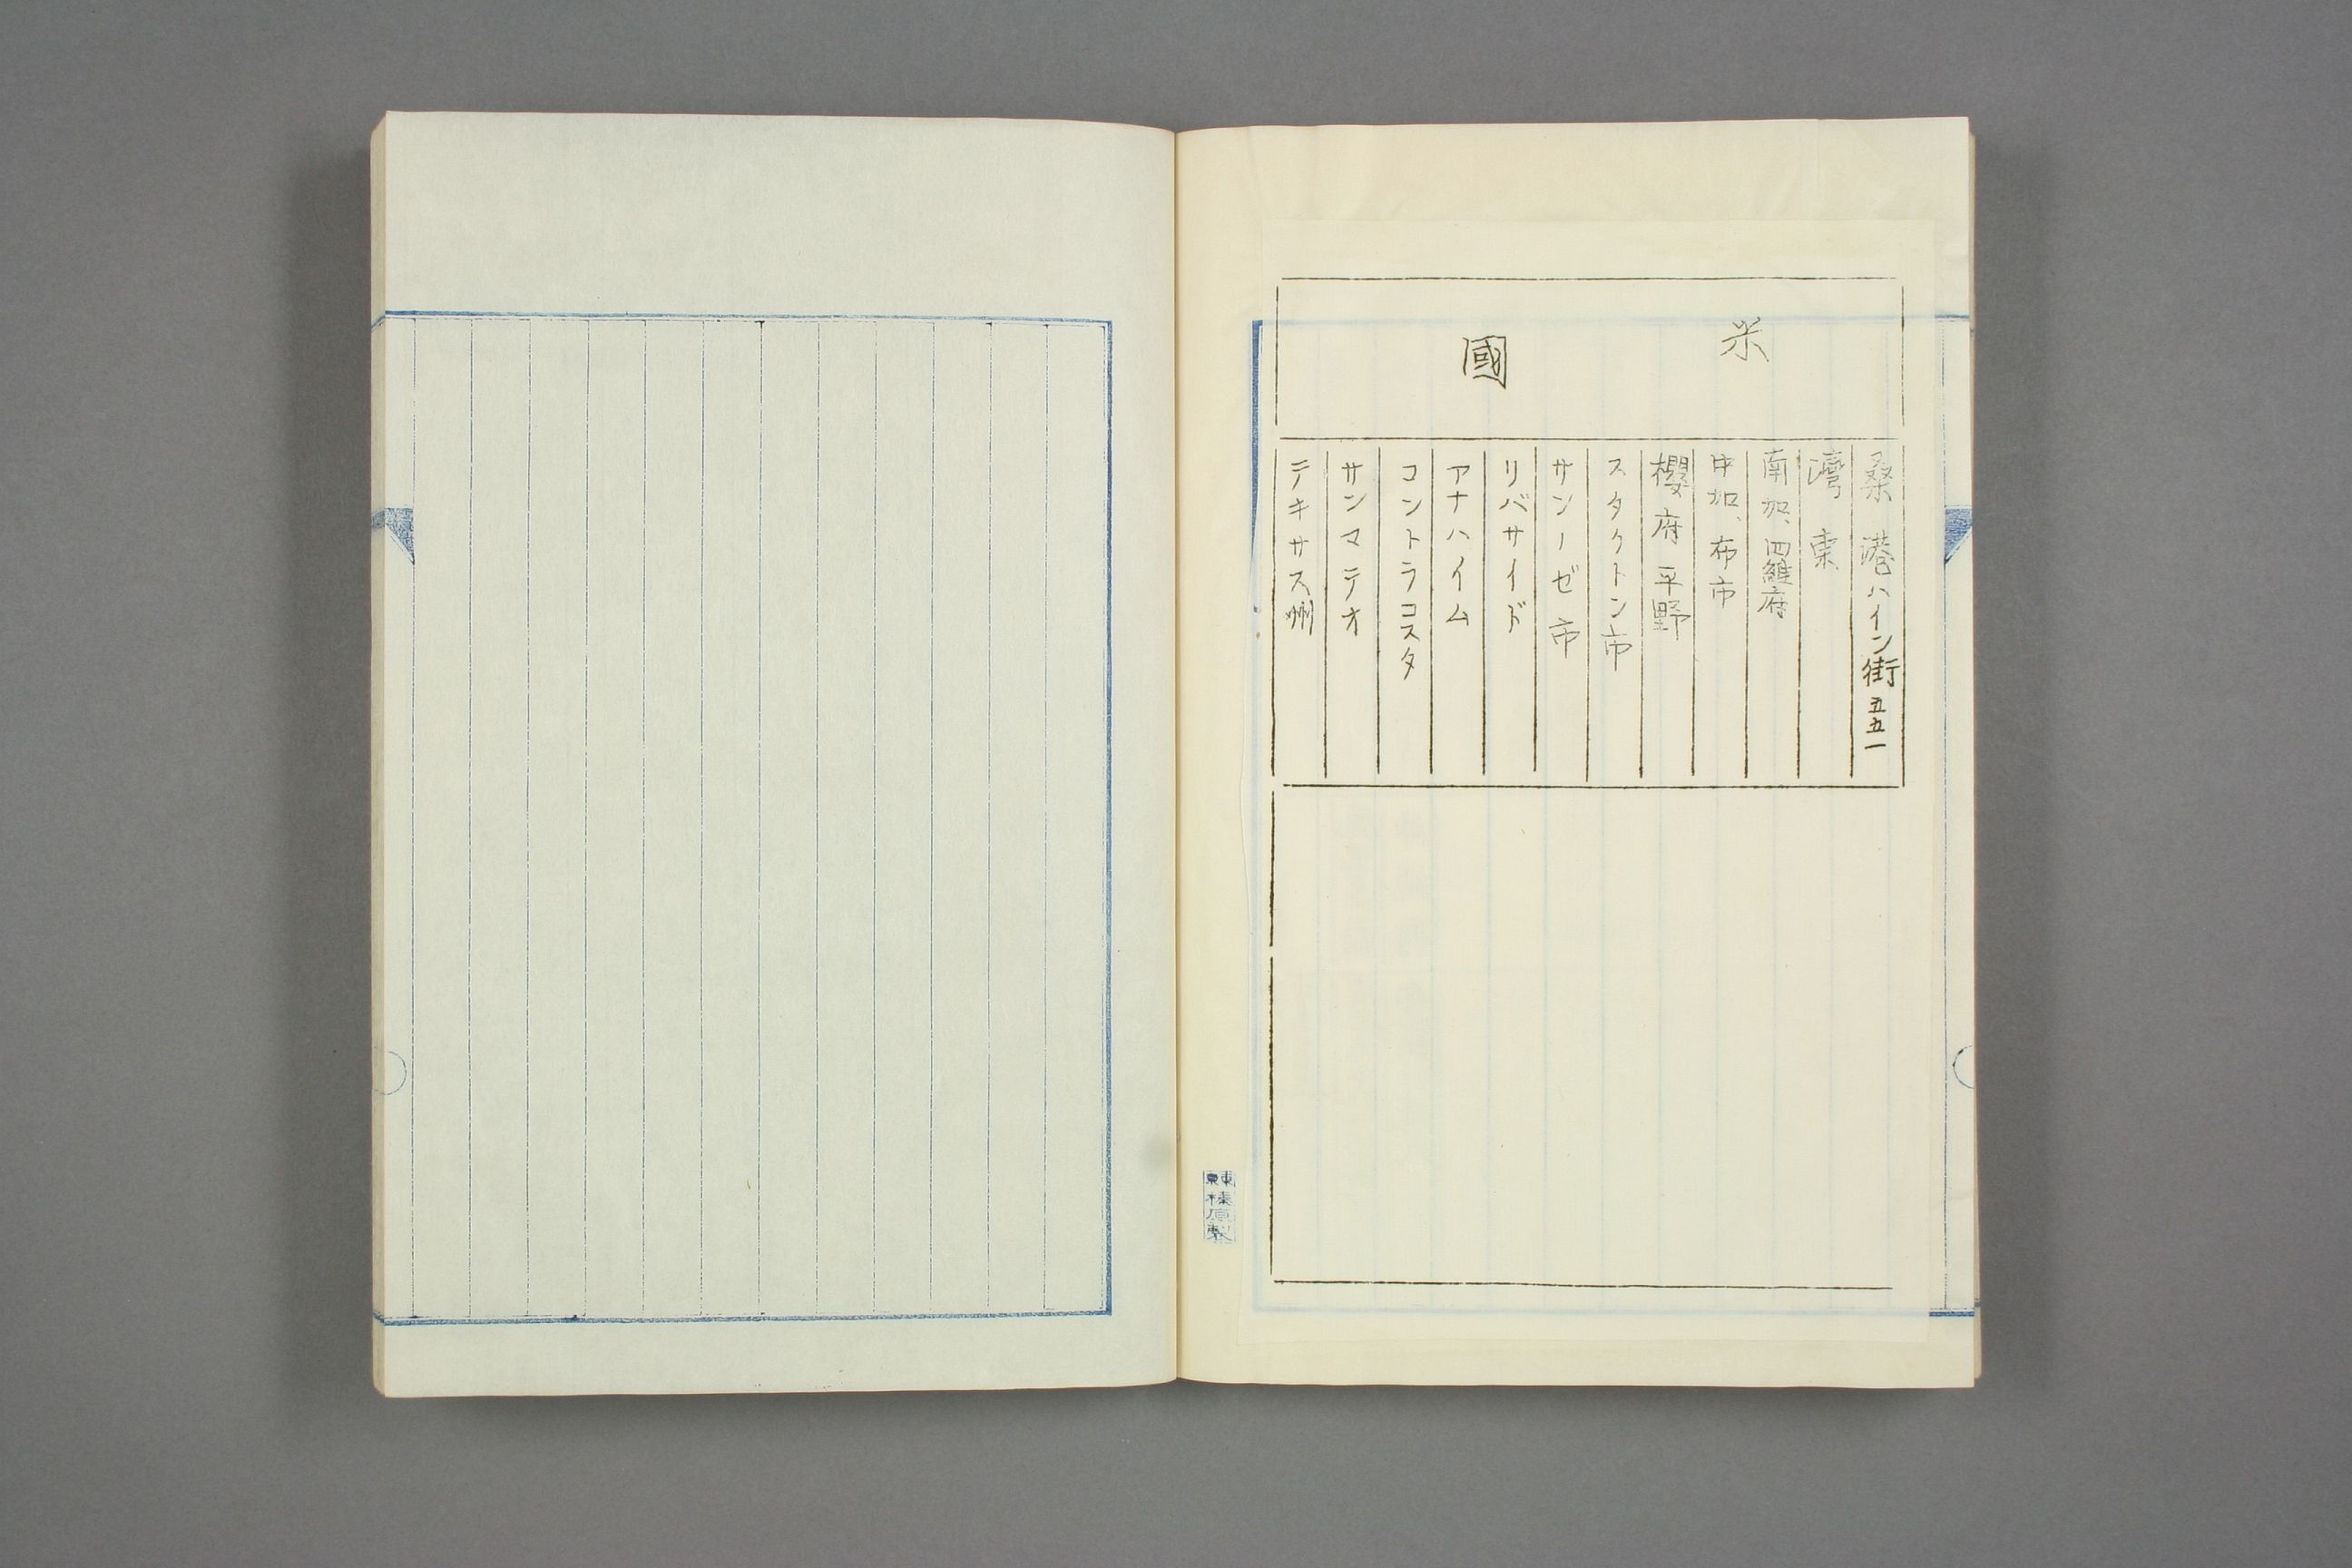 米國
桑港ハイン街五五一
湾東
南加、四羅府
中加、布市
櫻府平野
スタクトン市
サンノゼ市
リバサイド
アナハイム
コントラコスタ
サンマテオ
テキサス州
東京
榛原製